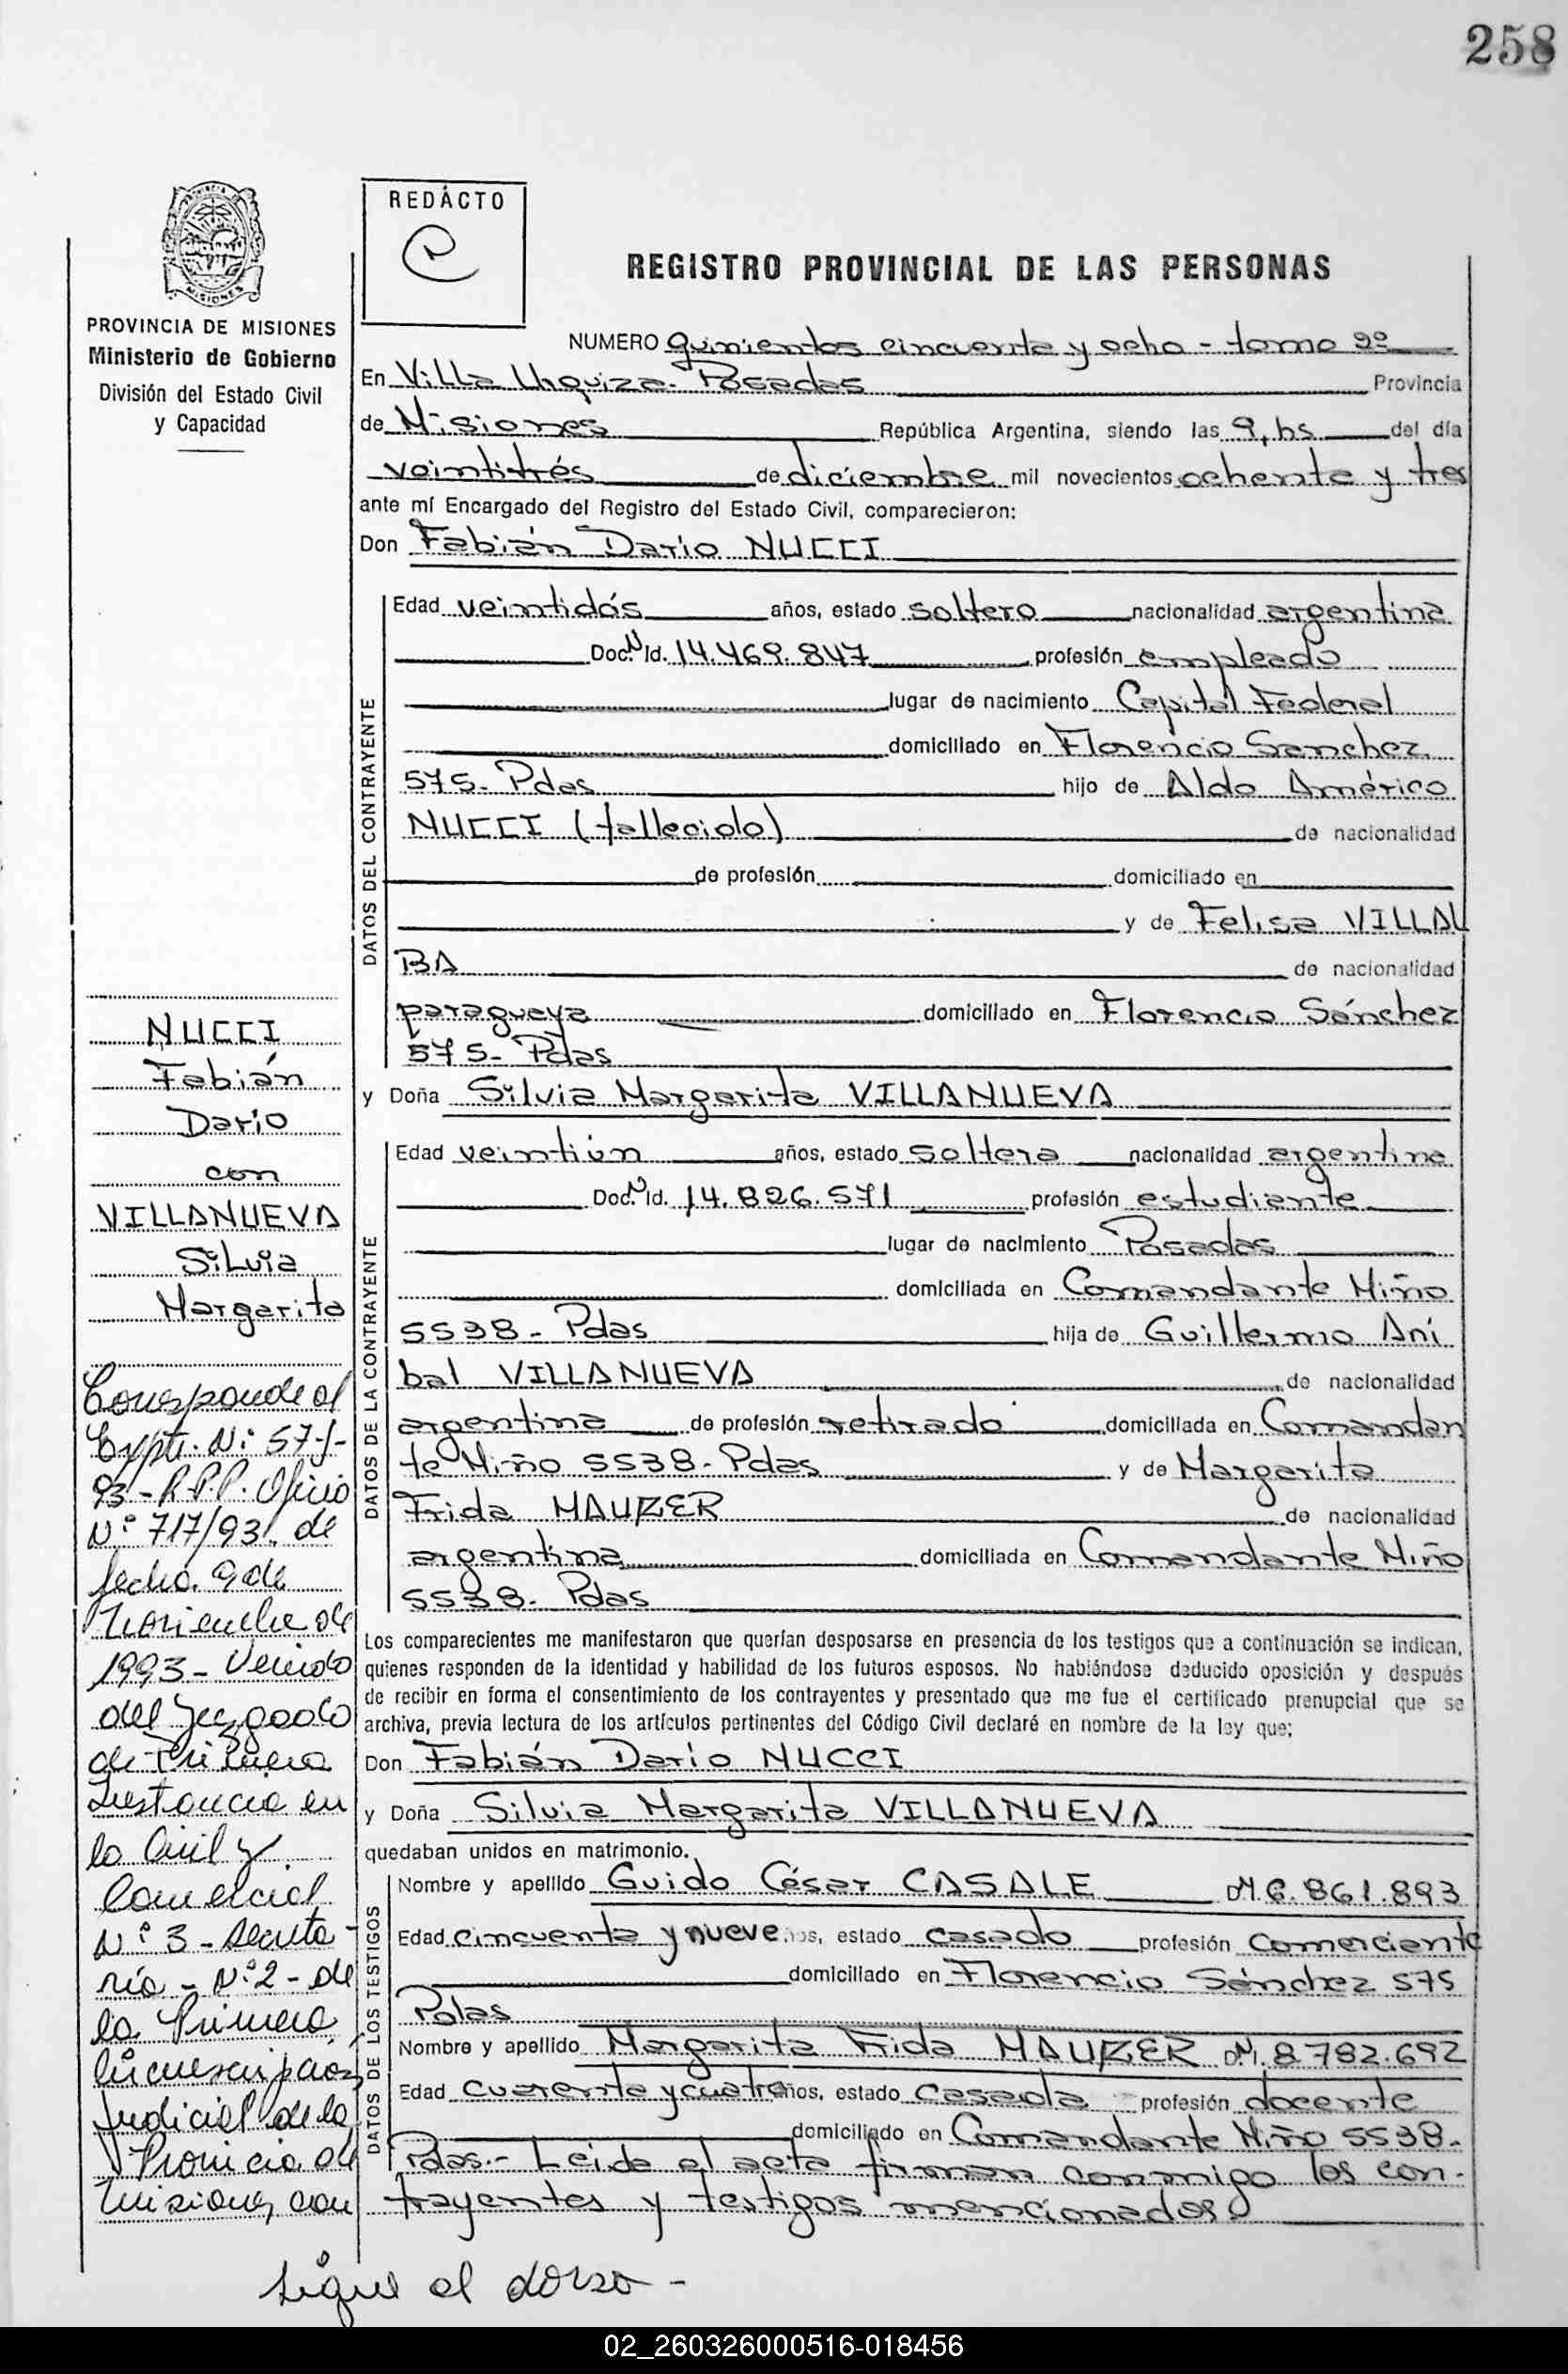 258
REDÁCTO
PROVINCIA DE MISIONES
Ministerio de Gobierno
División del Estado Civil
y Capacidad
REGISTRO PROVINCIAL DE LAS PERSONAS
NUMERO quinientos cincuenta y ocho - tomo 2º
En Villa Urquiza - Posadas Provincia
de Misiones República Argentina, siendo las 9, hs del día
veintitrés de diciembre mil novecientos ochenta y tres
ante mí Encargado del Registro del Estado Civil, comparecieron:
Don Fabián Dario NUCCI
DATOS DEL CONTRAYENTE
Edad veintidós años, estado soltero nacionalidad argentina
Doc. N Id. 14.469.847 profesión empleado
lugar de nacimiento Capital Federal
domiciliado en Florencio Sanchez
575- Pdas hijo de Aldo Américo
NUCCI (fallecido) de nacionalidad
de profesión domiciliado en
y de Felisa VILLAL
BA de nacionalidad
paraguaya domiciliado en Florencio Sánchez
575- Pdas
y Doña Silvia Margarita VILLANUEVA
DATOS DE LA CONTRAYENTE
Edad veintiún años, estado soltera nacionalidad argentina
Doc. N Id. 14.826.571 profesión estudiante
lugar de nacimiento Posadas
domiciliada en Comandante Miño
5538- Pdas hija de Guillermo Aní
bal VILLANUEVA de nacionalidad
argentina de profesión retirado domiciliada en Comandan
te Miño 5538- Pdas y de Margarita
Frida MAURER de nacionalidad
argentina domiciliada en Comandante Miño
5538- Pdas
Los comparecientes me manifestaron que querían desposarse en presencia de los testigos que a continuación se indican,
quienes responden de la identidad y habilidad de los futuros esposos. No habiéndose deducido oposición y después
de recibir en forma el consentimiento de los contrayentes y presentado que me fue el certificado prenupcial que se
archiva, previa lectura de los artículos pertinentes del Código Civil declaré en nombre de la ley que:
Don Fabián Dario NUCCI
y Doña Silvia Margarita VILLANUEVA
quedaban unidos en matrimonio.
DATOS DE LOS TESTIGOS
Nombre y apellido Guido César CASALE M.6.861.893
Edad cincuenta y nueve años, estado casado profesión comerciante
domiciliado en Florencio Sánchez 575
Pdas
Nombre y apellido Margarita Frida MAURER 8782.692
Edad cuarenta y cuatro años, estado casada profesión docente
domiciliado en Comandante Miño 5538-
Pdas.- Leida el acta firman conmigo los con-
trayentes y testigos mencionados
NUCCI
Fabián
Dario
con
VILLANUEVA
Silvia
Margarita
Corresponde al
Expte. Nº 57-J-
93- R.P.P. Oficio
Nº 717/93. de
fecha 9 de
Noviembre de
1993- Venido
del Juzgado
de Primera
Instancia en
lo Civil y
Comercial
Nº 3- Secreta-
ria - Nº2- de
la Primera
Circunscripción
Judicial de la
Provincia de
Misiones, con
sigue al dorso-
02_260326000516-018456